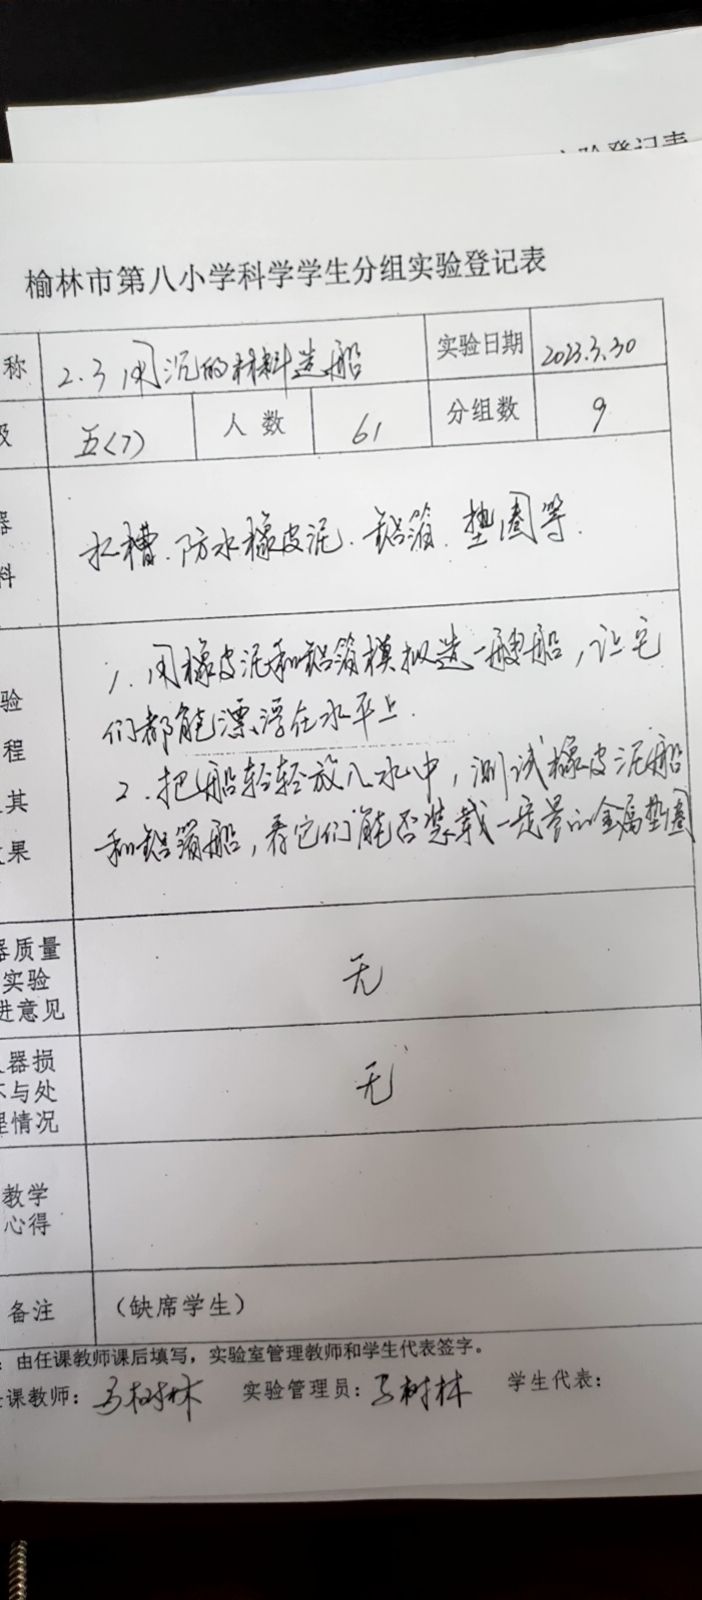 实验登记表
榆林市第八小学科学学生分组实验登记表
称 2.3用沉的材料造船 实验日期 2023.3.30
级 五(7) 人数 61 分组数 9
器
料
水槽、防水橡皮泥、铝箔、垫圈等.
验
程
其
果
1.用橡皮泥和铝箔模拟造一艘船,让它
们都能漂浮在水平上.
2.把船轻轻放入水中,测试橡皮泥船
和铝箔船,看它们能否装载一定量的金属垫圈
器质量
实验
进意见
无
器损
坏与处
理情况
无
教学
心得
备注 (缺席学生)
:由任课教师课后填写,实验室管理教师和学生代表签字。
课教师: 树林 实验管理员: 树林 学生代表: